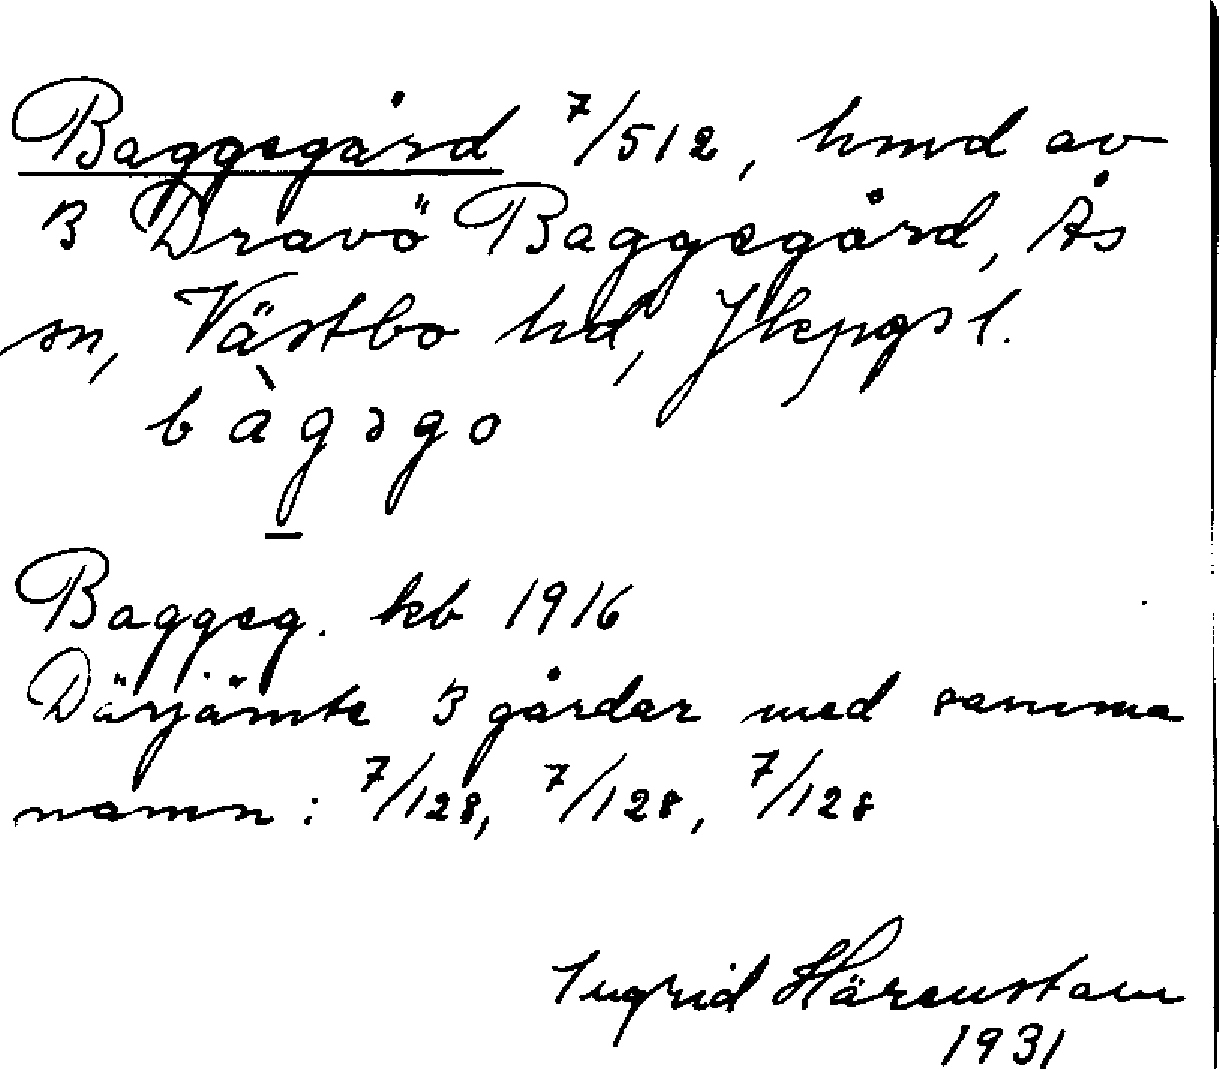 Baggegård 7/512, hmd av
3 Dravö Baggegård, Ås
sn, Västbo hd, Jkpgs l.
bàgəgo
Baggeg. kb 1916
Därjämte 3 gårdar med samma
namn: 7/128, 7/128, 7/128
Ingrid Härenstam
1931